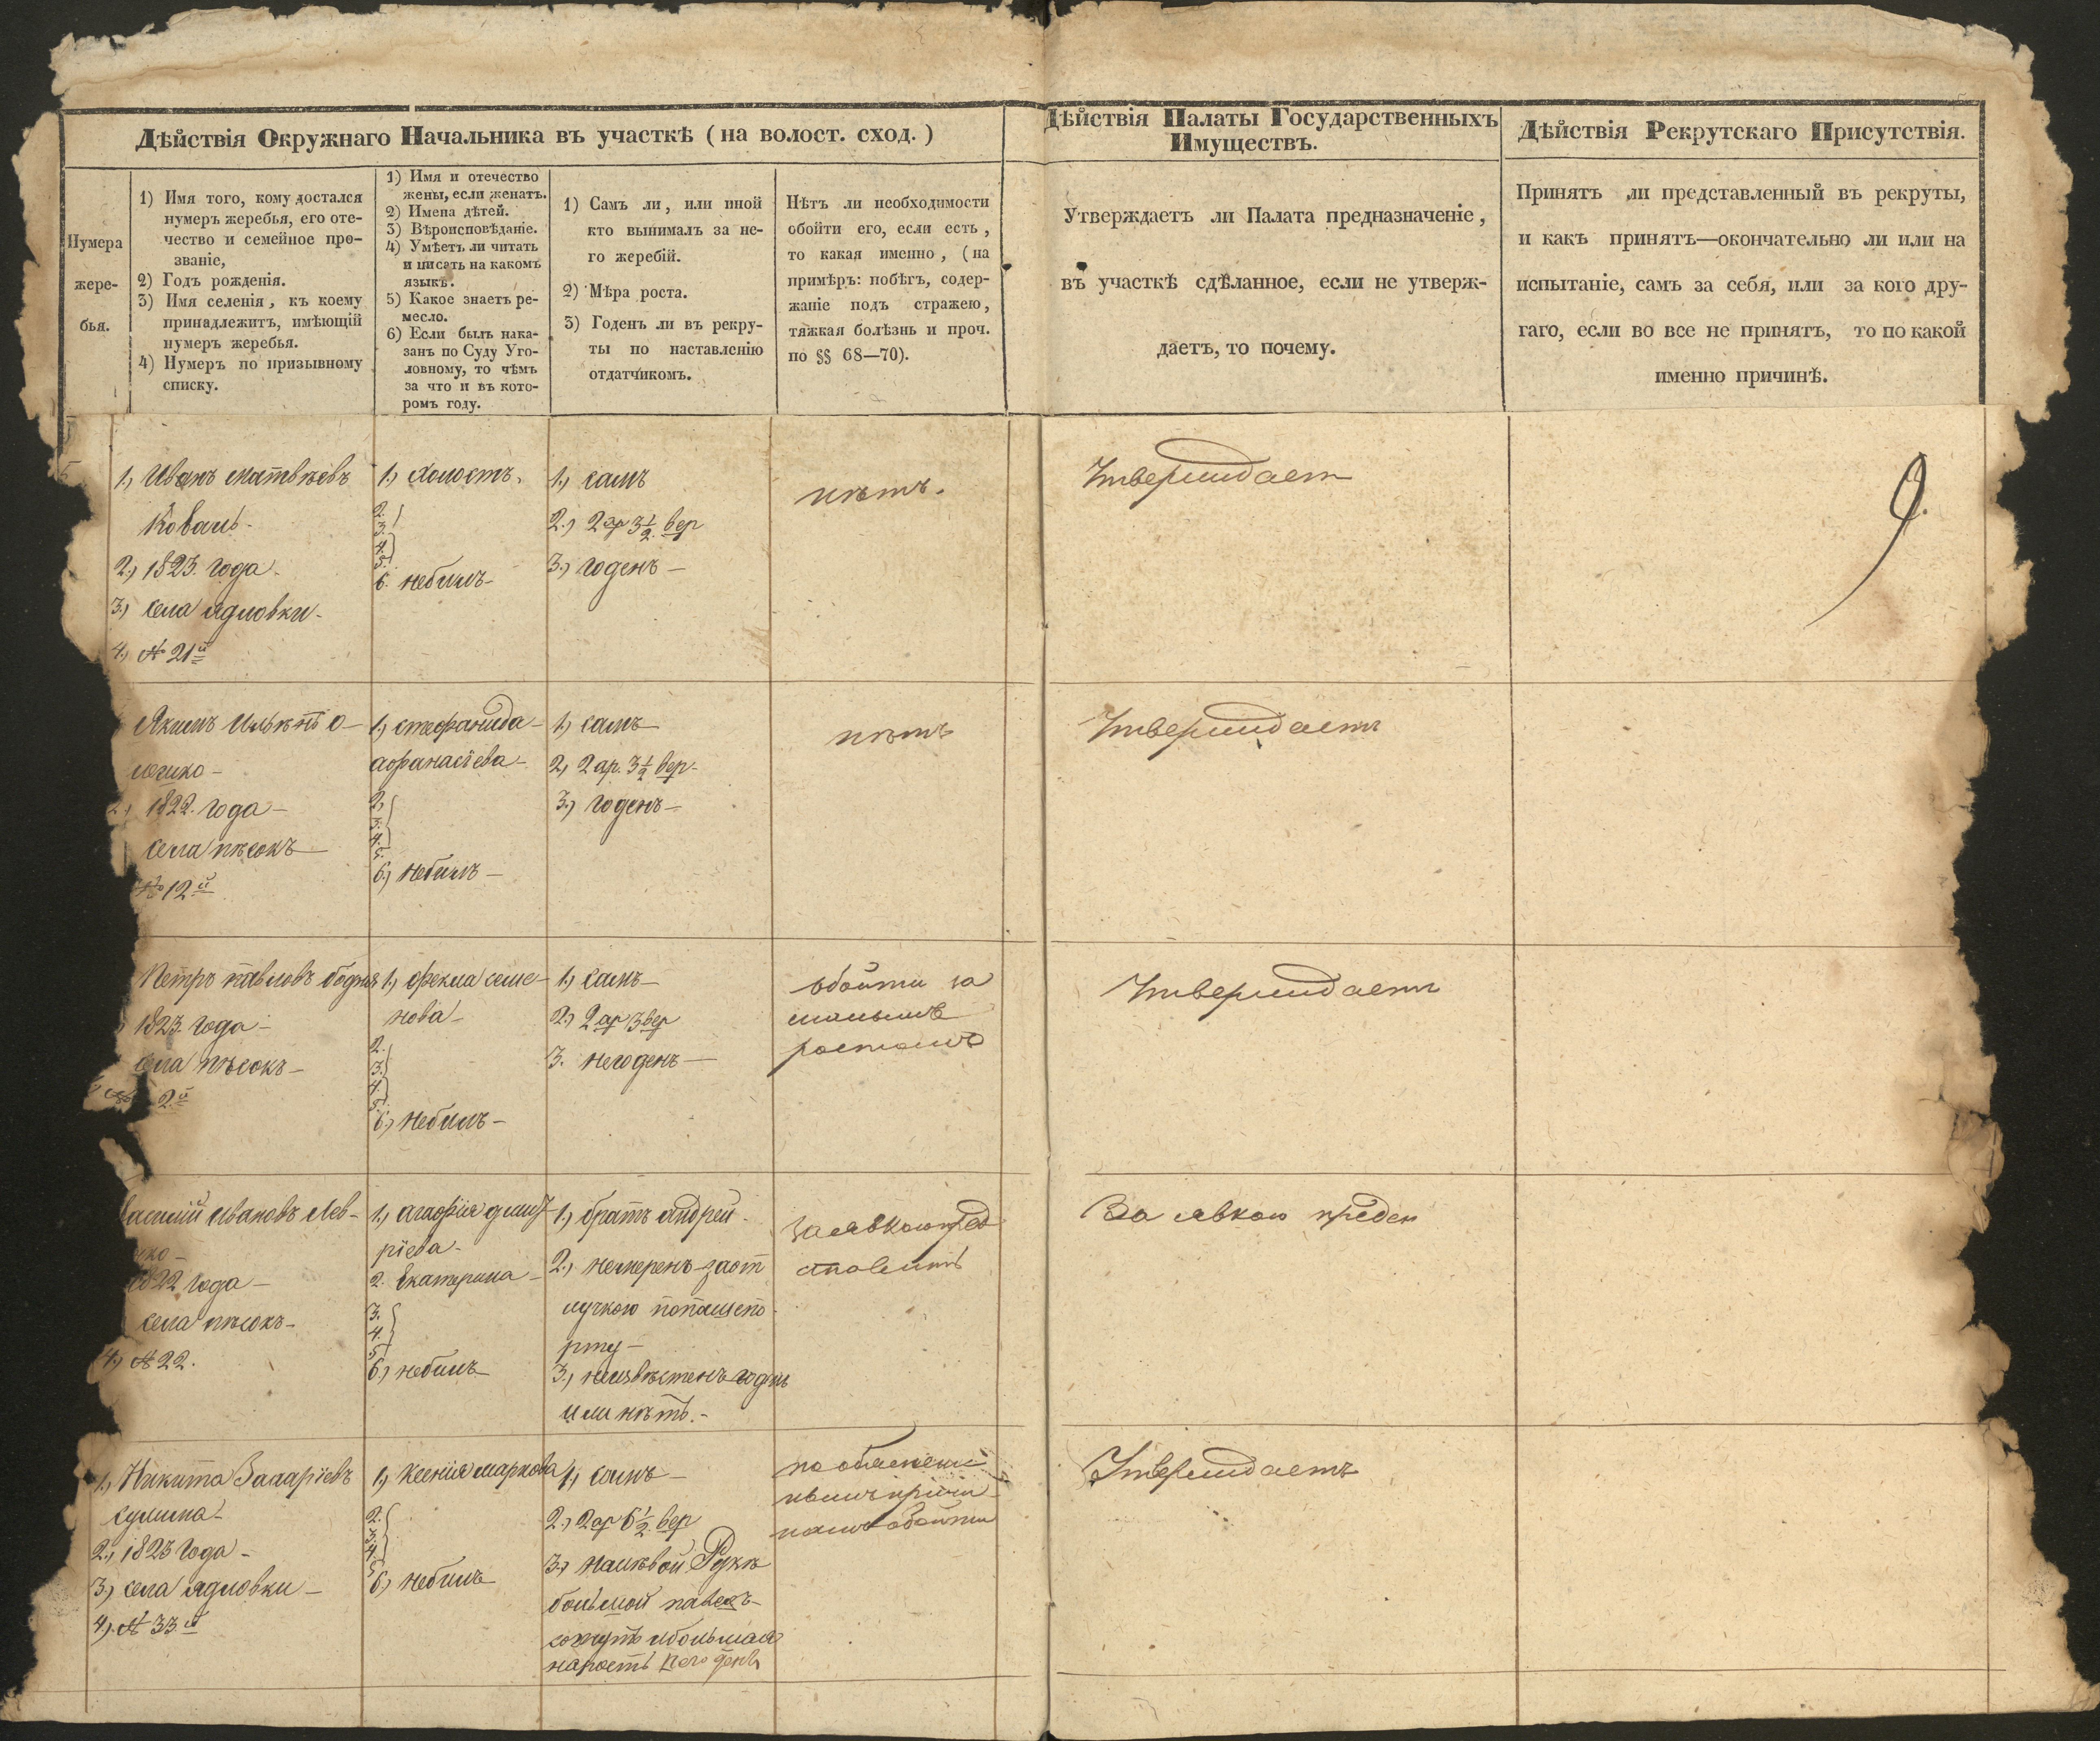 Дѣйствія Окружнаго Начальника въ участкѣ ( на волост. сход. )
Дѣйствія Палаты Государственныхъ
Имуществъ.
Дѣйствія Рекрутскаго Присутствія.
Нумера
жере-
бья.
1) Имя того, кому достался
нумеръ жеребья, его оте-
чество и семейное про-
званіе,
2) Годъ рожденія.
3) Имя селенія, къ коему
принадлежитъ, имѣющій
нумеръ жеребья.
4) Нумеръ по призывному
списку.
1) Имя и отечество
жены, если женатъ.
2) Имена дѣтей.
3) Вѣроисповѣданіе.
4) Умѣетъ ли читать
и писать на какомъ
языкѣ.
5) Какое знаетъ ре-
месло.
6) Если былъ нака-
занъ по Суду Уго-
ловному, то чѣмъ
за что и въ кото-
ромъ году.
1) Самъ ли, или иной
кто вынималъ за не-
го жеребій.
2) Мѣра роста.
3) Годенъ ли въ рекру-
ты по наставленію
отдатчикомъ.
Нѣтъ ли необходимости
обойти его, если есть,
то какая именно, (на
примѣръ: побѣгъ, содер-
жаніе подъ стражею,
тяжкая болѣзнь и проч.
по §§ 68—70).
Утверждаетъ ли Палата предназначеніе,
въ участкѣ сдѣланное, если не утверж-
даетъ, то почему.
Принятъ ли представленный въ рекруты,
и какъ принятъ—окончательно ли или на
испытаніе, самъ за себя, или за кого дру-
гаго, если во все не принятъ, то по какой
именно причинѣ.
5
1., Иванъ Матвѣевъ
Коваль-
2., 1823. года-
3., села Ядловки-
4., № 21й
1., холостъ.
2.
3.
4.
5.
6. небылъ-
1., самъ
2., 2 ар 3 1/2 вер
3., годенъ-
нѣтъ.
Утверждает
9.
Якимъ
1822. года-
села пѣсокъ
№ 12й
1., стефанида-
афанасіева-
2,
3.
4.
5.
6., небылъ-
1., самъ
2, 2 ар. 3 1/2 вер-
3., годенъ-
нѣтъ
Утверждаетъ
Петръ павловъ бодня
1823 года-
села пѣсокъ-
2.й
1., фекла семе-
нова-
2.
3.
4.
5.
6., небылъ-
1., самъ-
2., 2 ар 3 вер
3. негоденъ-
обойти за
малымъ
ростомъ
Утверждаетъ
Василій ивановъ Лев-
1822 года-
села пѣсокъ-
4., № 22.
1., агафія дмит-
ріева-
2. Екатерина-
3.
4.
5
6., небылъ
1., братъ андрей-
2., немеренъ заот
лучкою попашепо-
рту-
3., неизвѣстенъ годенъ
или нѣтъ.-
заявкою пред
ставить
За явкою предст
1., Никита Захаріевъ
сулима-
2., 1823 года-
3., села Ядловки-
4., № 33.й
1., ксенія маркова
2.
3.
4.
5
6., небылъ
1., самъ-
2., 2 ар 6 1/2 вер
3., налѣвой Рукѣ
большой палецъ-
ибольшая
нарость негоденъ
обойти
Утверждаетъ